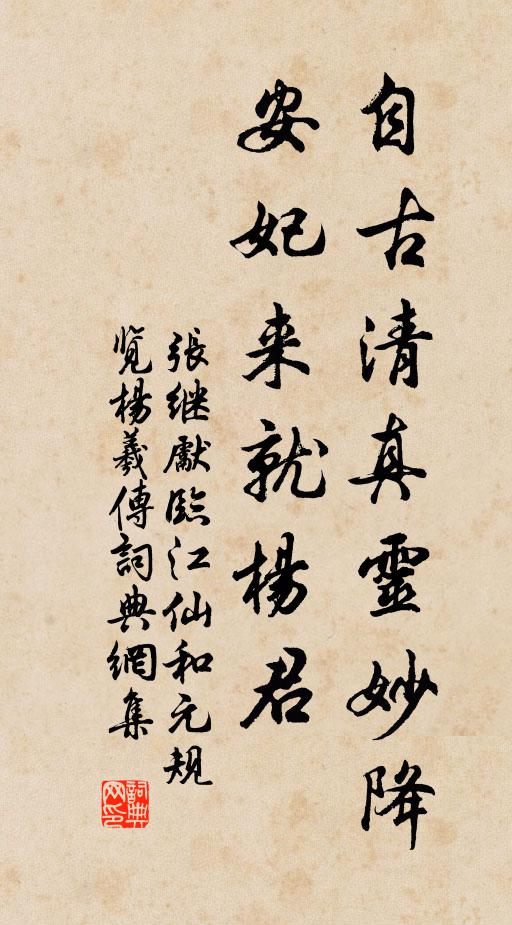 自古清真靈妙降
安妃来就楊君
張继獻臨江仙和元規
覽楊羲傳詞典網集
詞典网印